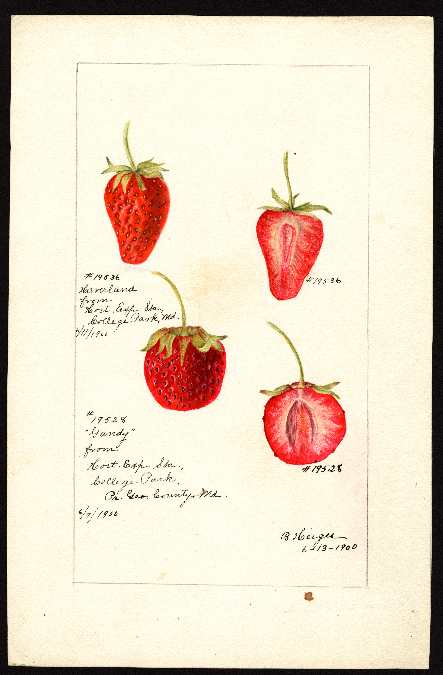 #19536
Haverland
from
Hort. Exp. Sta.,
College Park, Md.
/1900
#19536
#
19528
"Gandy"
from
Hort. Exp. Sta.,
College Park,
Pr. Geo. County, Md.
6/7/1900
#19528
B Heiges
6-13-1900